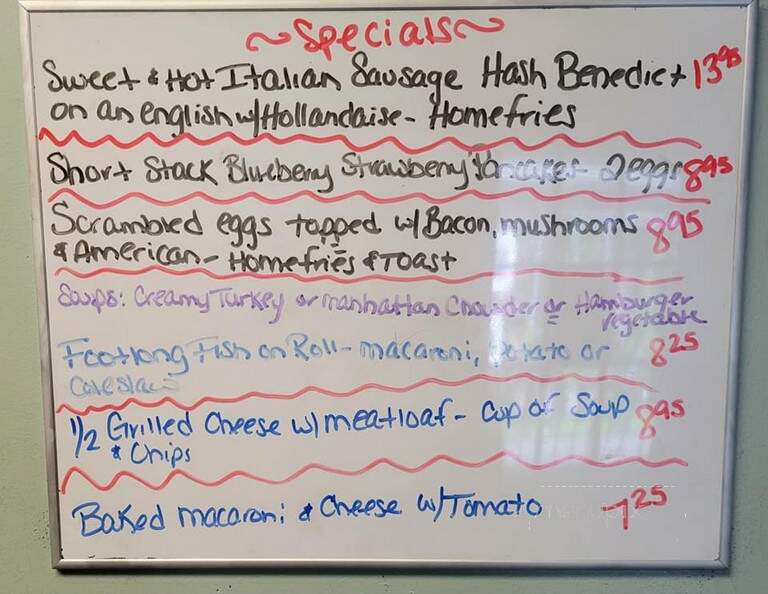 ~Specials~
Sweet & Hot Italian Sausage Hash Benedict 13.95
on an english w/Hollandaise - Homefries
Short Stack Blueberry Strawberry Pancakes - 2 eggs 8.95
Scrambled eggs topped w/Bacon, mushrooms 8.95
& American - Homefries & Toast
Soups: Creamy Turkey or manhattan Chowder or Hamburger
vegetable
Footlong Fish on Roll - macaroni, potato or 8.25
coleslaw
1/2 Grilled Cheese w/meatloaf - cup of Soup 8.95
& Chips
Baked macaroni & Cheese w/Tomato 7.25